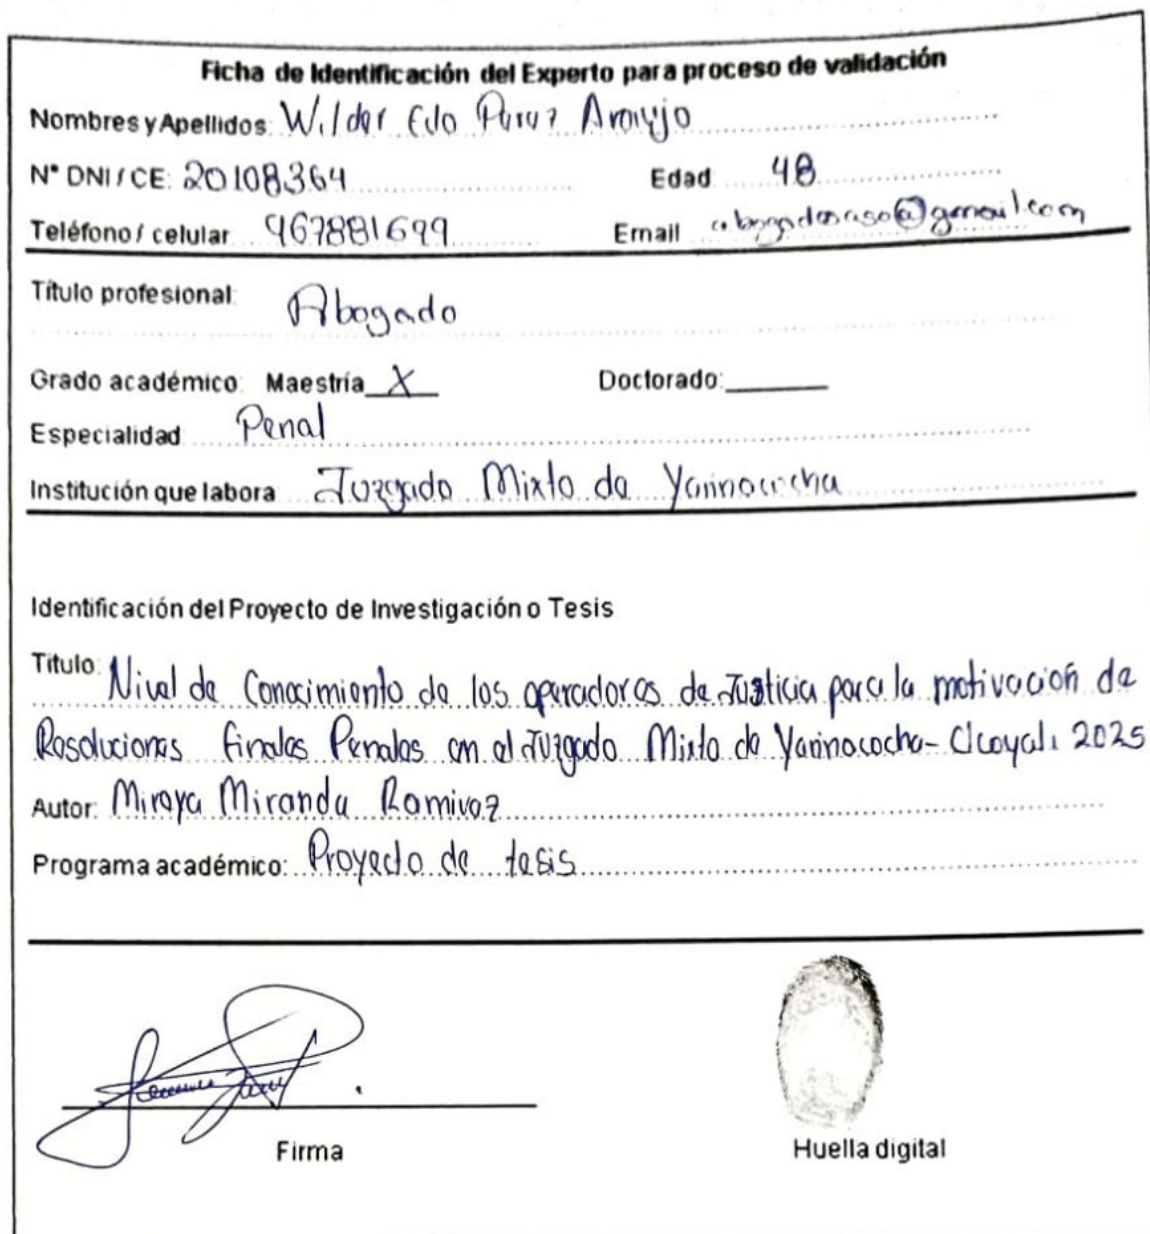 Ficha de Identificación del Experto para proceso de validación
Nombres y Apellidos: Wilder Edo Perez Araujo
N° DNI / CE: 20108364 Edad 48
Teléfono / celular 967881699 Email @gmail.com
Título profesional: Abogado
Grado académico: Maestría X Doctorado:
Especialidad Penal
Institución que labora Juzgado Mixto de Yarinacocha
Identificación del Proyecto de Investigación o Tesis
Titulo: Nivel de Conocimiento de los operadores de Justicia para la motivación de
Resoluciones finales Penales en el Juzgado Mixto de Yarinacocha - Ucayali 2025
Autor: Mireya Miranda Ramirez
Programa académico: Proyecto de tesis
Firma Huella digital